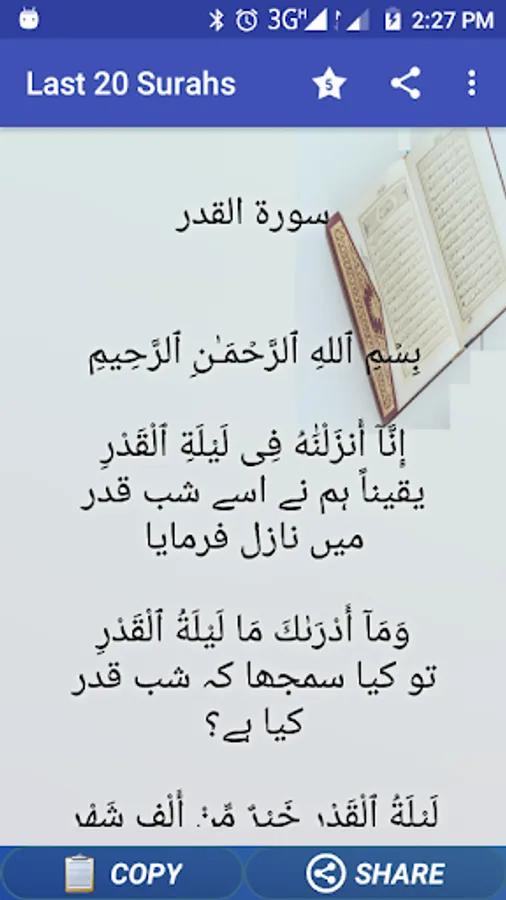 3G H 2:27 PM
Last 20 Surahs
5
سورة القدر
بِسْمِ ٱللهِ ٱلرَّحْمَـٰنِ ٱلرَّحِيمِ
إِنَّآ أَنزَلْنَٰهُ فِى لَيْلَةِ ٱلْقَدْرِ
یقیناً ہم نے اسے شب قدر
میں نازل فرمایا
وَمَآ أَدْرَىٰكَ مَا لَيْلَةُ ٱلْقَدْرِ
تو کیا سمجھا کہ شب قدر
کیا ہے؟
لَيْلَةُ ٱلْقَدْرِ خَيْرٌ مِّنْ أَلْفِ شَهْرٍ
COPY
SHARE